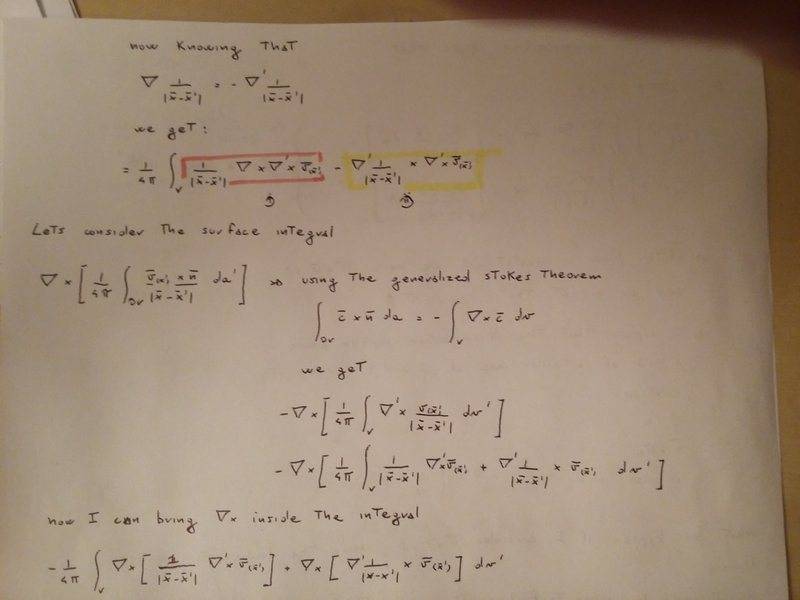 now Knowing That
∇ 1/|x̄-x̄'| = - ∇' 1/|x̄-x̄'|
we geT:
= 1/4π ∫_V 1/|x̄-x̄'| ∇ × ∇' × v̄(x̄') - ∇' 1/|x̄-x̄'| × ∇' × v̄(x̄')
① ②
LeTs consider The surface inTegral
∇ × [ 1/4π ∫_∂V v̄(x̄') × n̄ / |x̄-x̄'| da' ] ⇒ using The generalized sTokes Theorem
∫_∂V c̄ × n̄ da = - ∫_V ∇ × c̄ dv
we geT
- ∇ × [ 1/4π ∫_V ∇' × v̄(x̄') / |x̄-x̄'| dv' ]
- ∇ × [ 1/4π ∫_V 1/|x̄-x̄'| ∇' × v̄(x̄') + ∇' 1/|x̄-x̄'| × v̄(x̄') dv' ]
now I can bring ∇× inside The inTegral
- 1/4π ∫_V ∇ × [ 1/|x̄-x̄'| ∇' × v̄(x̄') ] + ∇ × [ ∇' 1/|x-x'| × v̄(x̄') ] dv'